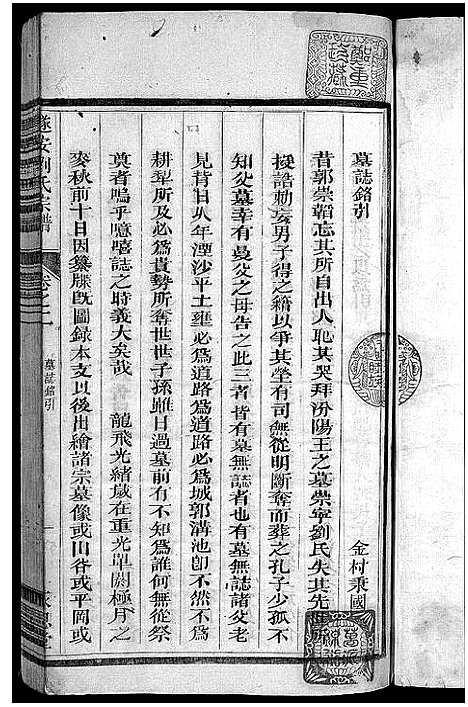 墓誌銘引
金村秉國
昔郭崇韜忘其所自出人恥其哭拜汾陽王之墓崇寧劉氏失其先世所
授誥勅妄男子得之藉以爭其塋有司無從明斷奪而葬之孔子少孤不
知父墓幸有曼父之母告之此三者皆有墓無誌者也有墓無誌諸父老
見背日久年湮沙平土壅必為道路為道路必為城郭溝池卽不然不為
耕犁所及必為貴勢所奪世世子孫雖日過墓前有不知為誰何無從祭
奠者嗚乎噫嘻誌之時義大矣哉 龍飛光緒歲在重光單閼極月之
麥秋前十日因纂牒旣圖錄本支以後出繪諸宗墓像或旧谷或平岡或
遂安劉氏宗譜
卷之二
墓誌銘引
鄭重珍藏